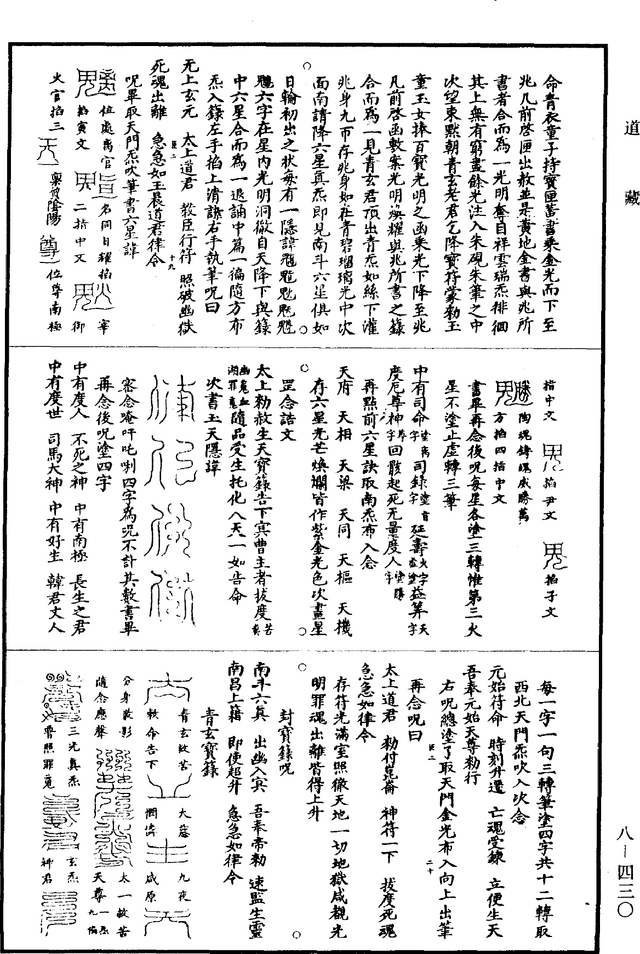 道藏
命青衣童子持寶匣黃書乘金光而下至
兆几前啓匣出赦並是黃地金書與兆所
書者合而為一光明奪目祥雲瑞炁徘徊
其上無有窮盡餘光注入朱硯朱筆之中
次望東默朝青玄老君乞降寶符蒙勑玉
童玉女捧百寶光明之函乘光下降至兆
几前啓函數案光明煥耀與兆所書之籙
合而為一見青玄君頂出青炁如絲下灌
兆身九帀存兆身如在青碧瑠璃光中次
面南請降六星真炁即見南斗六星俱如
日輪初出之狀每有一隱諱
六字在星內光明洞徹自天降下與籙
中六星合而為一退誦中篇一徧隨方布
炁入籙左手掐上清訣右手執筆呪曰
无上玄元 太上道君 敕臣行符 照破幽獄
死魂出離 急急如玉晨道君律令
呪畢取天門炁吹筆書六星諱
位處离宮 名同日耀 掐 宰
掐寅文 二掐中文 御
火官掐三 稟質陰陽 位尊南極
掐中文 掐尹文 掐子文
陶魂鑄魄威勝萬
方掐四掐中文
書畢再念後呪每星各塗三轉惟第三火
星不塗止虛轉三筆
中有司命 司錄 延壽 益算
度厄尊神 回骸起死无量度人
再點前六星訣取南炁布入念
天府 天相 天梁 天同 天樞 天機
存六星光芒煥爛皆作紫金光色次畫星
罡念誥文
太上勑救生天寶籙告下冥曹主者拔度
隨品受生托化人天一如告命
次書玉天隱諱
密念唵吽吒唎四字為呪不計其數書畢
再念後呪塗四字
中有度人 不死之神 中有南極 長生之君
中有度世 司馬大神 中有好生 韓君丈人
每一字一句三轉筆塗四字共十二轉取
西北天門炁吹入次念
元始符命 時刻升遷 亡魂受鍊 立便生天
吾奉元始天尊勑行
右呪總塗了取天門金光布入向上出筆
再念呪曰
太上道君 勑付崑崙 神符一下 拔度死魂
急急如律令
存符光滿室照徹天地一切地獄咸覩光
明罪魂出離皆得上升
封寶籙呪
南斗六真 出幽入冥 吾奉帝勑 速監生靈
南昌上籍 即使超升 急急如律令
青玄寶籙
青玄救苦 大 九夜
敕命告下 咸原
分身散影 太一救苦
隨念應聲 天尊 一炁九徧
三光真炁 玄炁
普照罪魂 神君
八－四三〇